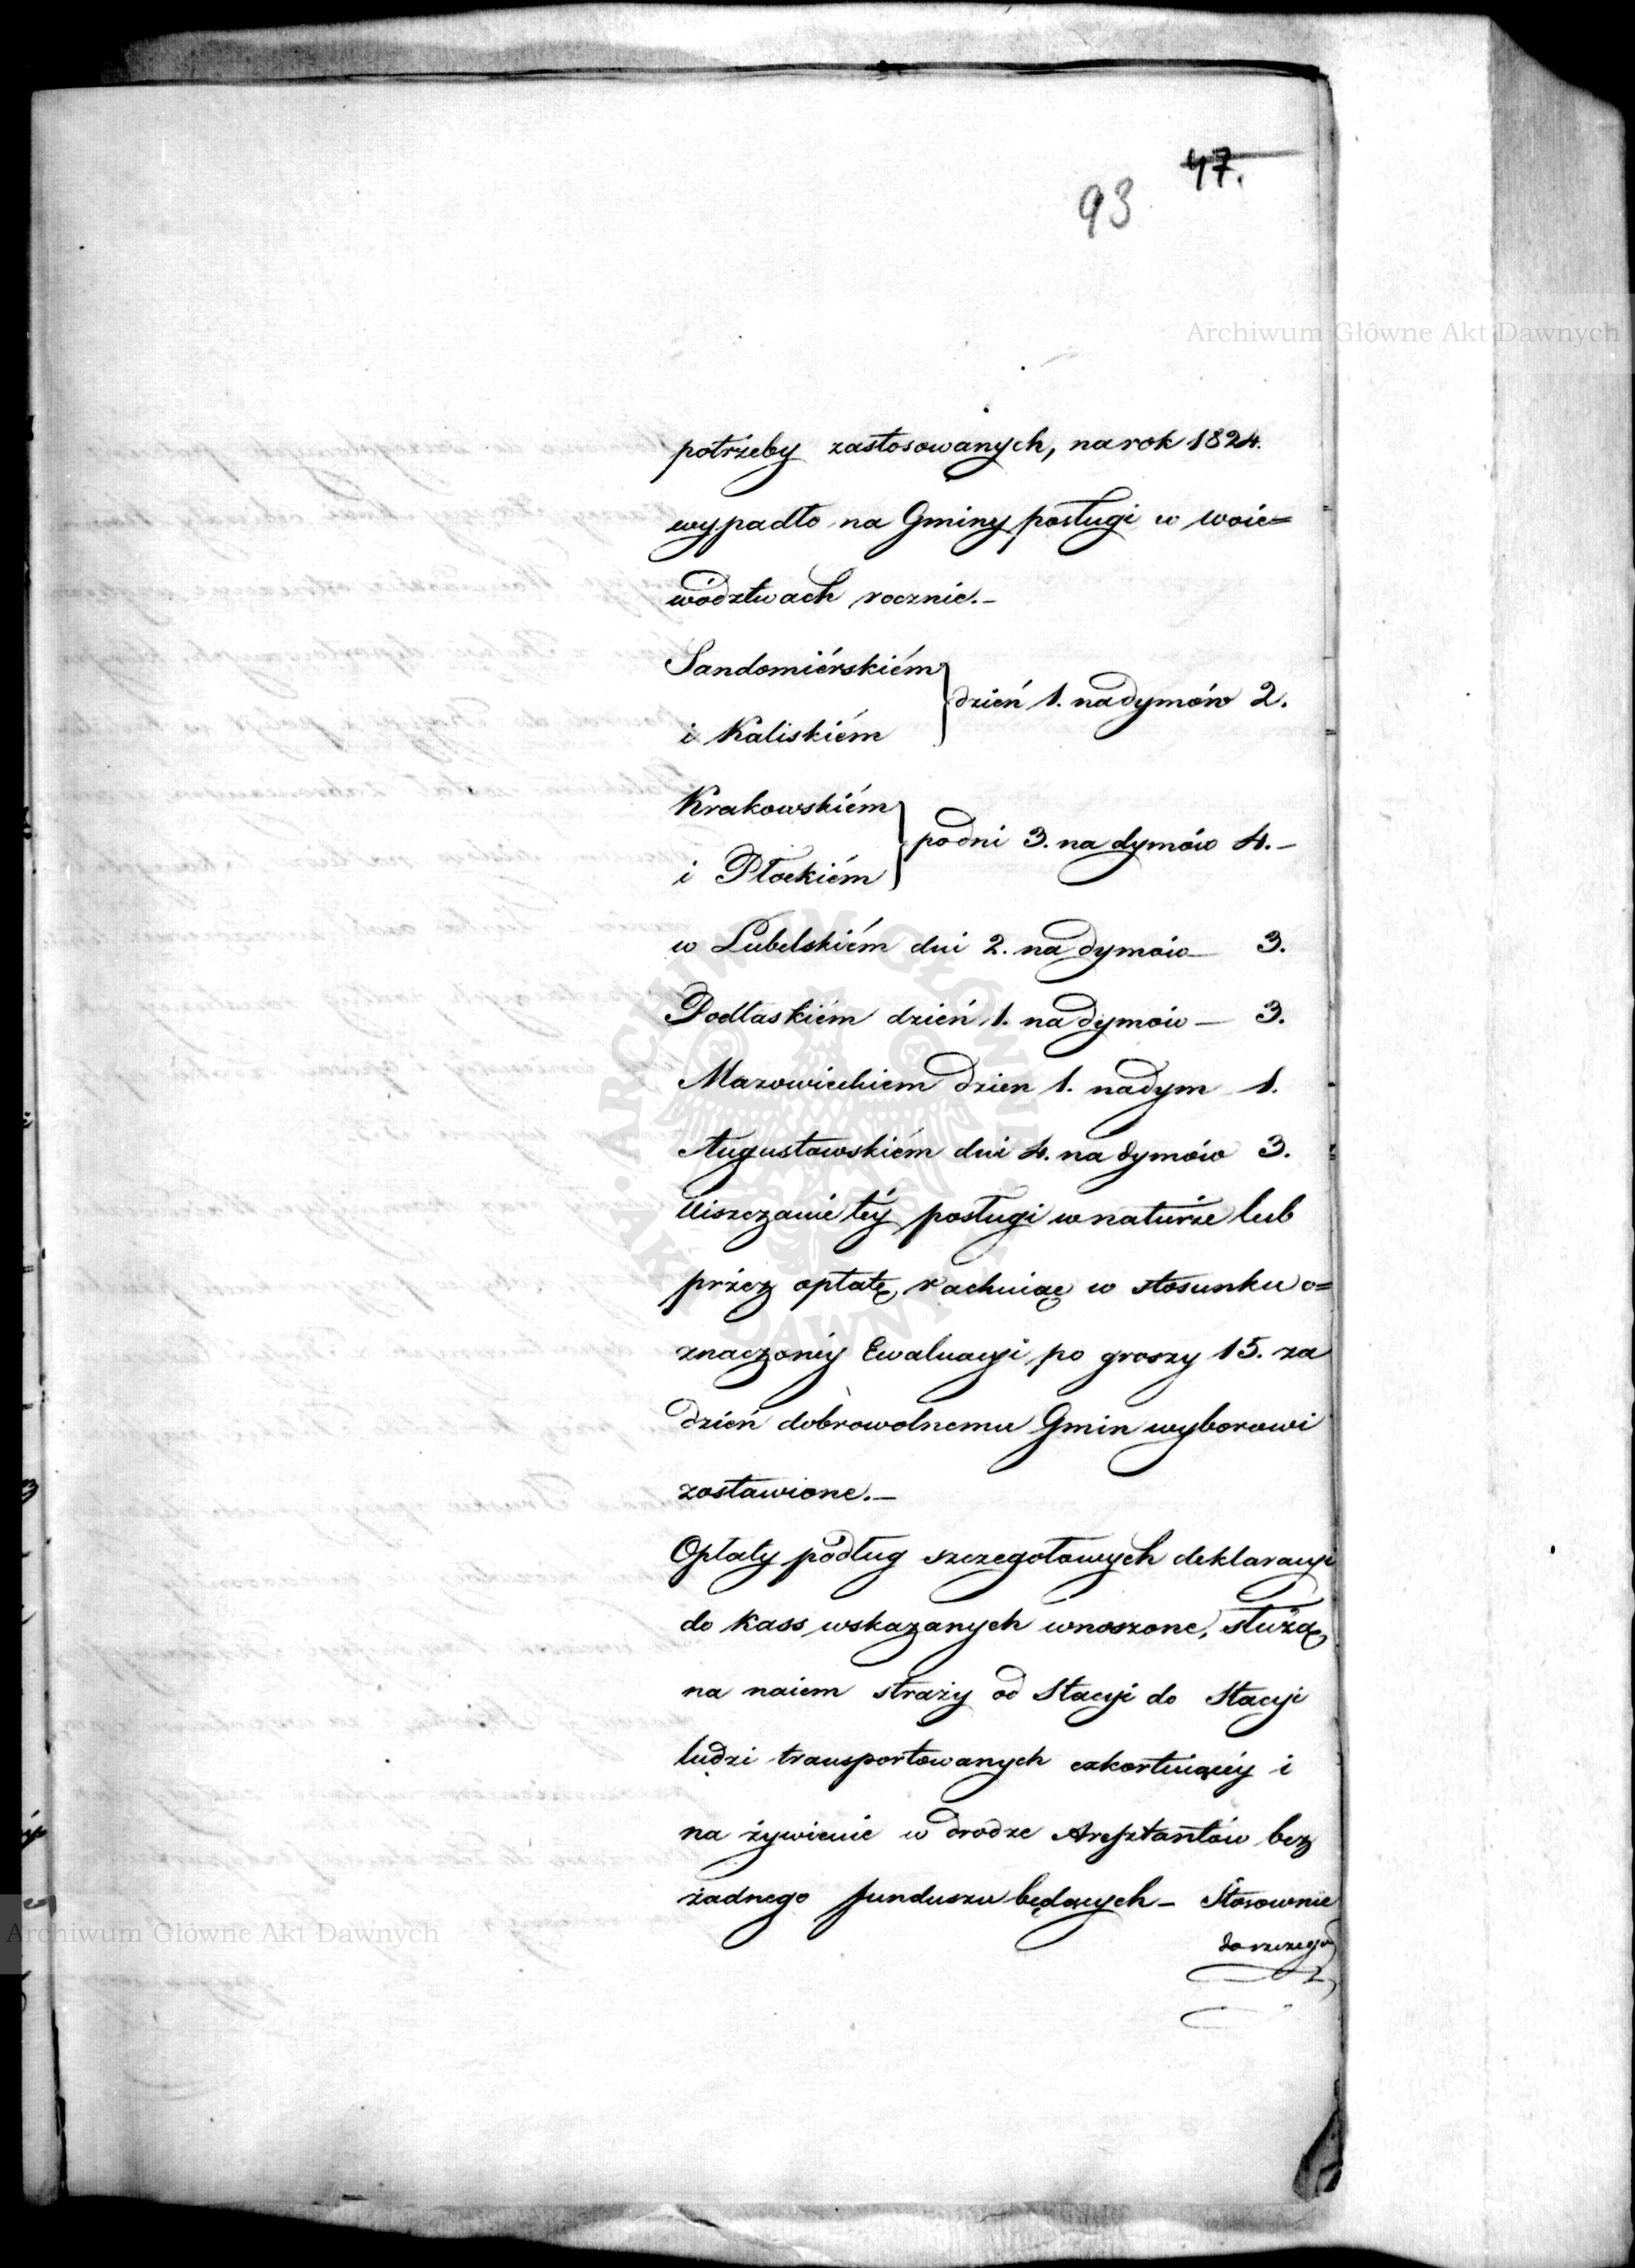 47.
93
Archiwum Główne Akt Dawnych
potrzeby zastosowanych, na rok 1824.
wypadło na Gminy posługi w woie=
wództwach rocznie.–
Sandomiérskiém
i Kaliskiém } dzień 1. na dymów 2.
Krakowskiém
i Płockiém } po dni 3. na dymów 4.–
w Lubelskiém dni 2. na dymów – 3.
Podlaskiém dzień 1. na dymów – 3.
Mazowieckiem dzien 1. na dym 1.
Augustowskiém dni 4. na dymów 3.
Uiszczanie téy posługi w naturze lub
przez opłatę, rachuiąc w stosunku o=
znaczonéy Ewaluacyi po groszy 15. za
dzień dobrowolnemu Gmin wyborowi
zostawione.–
Opłaty podług szczegołowych deklaracyi
do kass wskazanych wnoszone, służą
na naiem straży od Stacyi do Stacyi
ludzi transportowanych exkortuiącéy i
na żywienie w drodze Aresztantów bez
żadnego funduszu będących – Stosownie
do szczegó
Archiwum Główne Akt Dawnych
ARCHIWUM GŁÓWNE AKT DAWNYCH